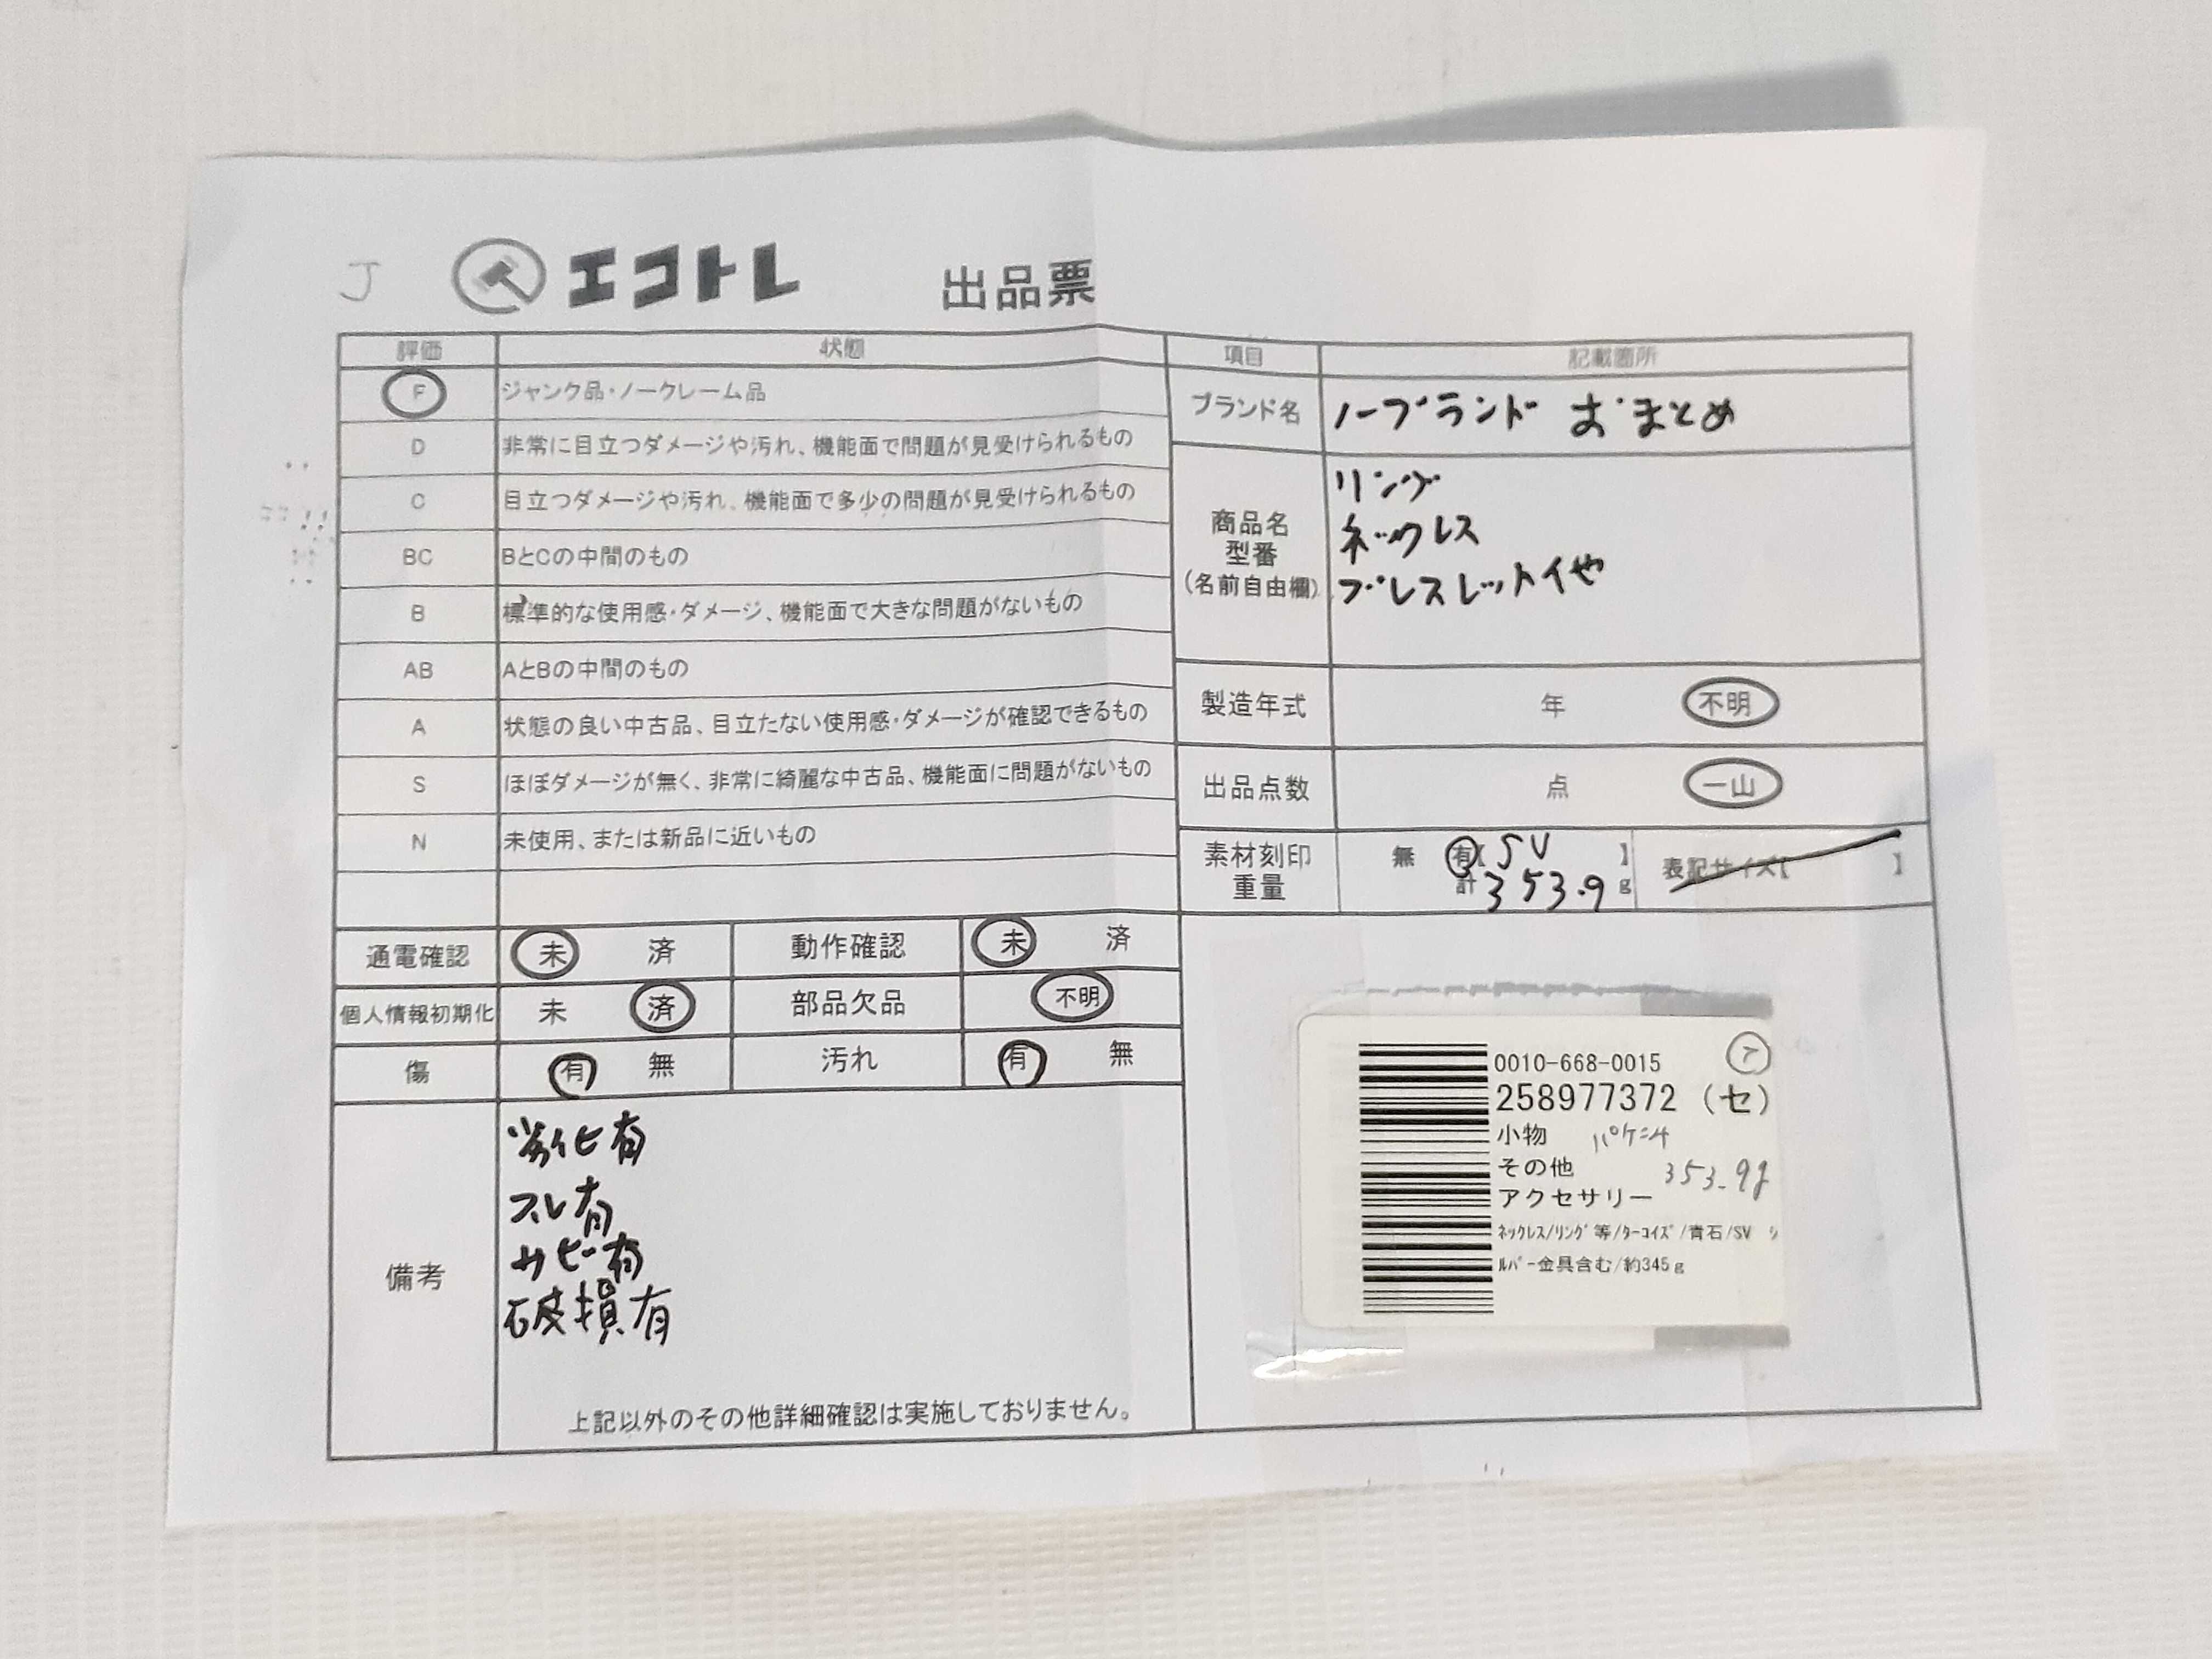 J エコトレ 出品票
評価 状態
F ジャンク品・ノークレーム品
D 非常に目立つダメージや汚れ、機能面で問題が見受けられるもの
C 目立つダメージや汚れ、機能面で多少の問題が見受けられるもの
BC BとCの中間のもの
B 標準的な使用感・ダメージ、機能面で大きな問題がないもの
AB AとBの中間のもの
A 状態の良い中古品、目立たない使用感・ダメージが確認できるもの
S ほぼダメージが無く、非常に綺麗な中古品、機能面に問題がないもの
N 未使用、または新品に近いもの
通電確認 未 済 動作確認 未 済
個人情報初期化 未 済 部品欠品 不明
傷 有 無 汚れ 有 無
備考
劣化有
スレ有
サビ有
破損有
上記以外のその他詳細確認は実施しておりません。
項目 記載箇所
ブランド名 ノーブランド おまとめ
商品名
型番
(名前自由欄)
リング
ネックレス
ブレスレットイヤ
製造年式 年 不明
出品点数 点 一山
素材刻印 無 有【SV 】
重量 計 353.9 g
表記サイズ【 】
0010-668-0015
258977372 (セ)
小物
その他 353.9g
アクセサリー
ﾈｯｸﾚｽ/ﾘﾝｸﾞ等/ﾀｰｺｲｽﾞ/青石/SV ｼ
ﾙﾊﾞｰ金具含む/約345g